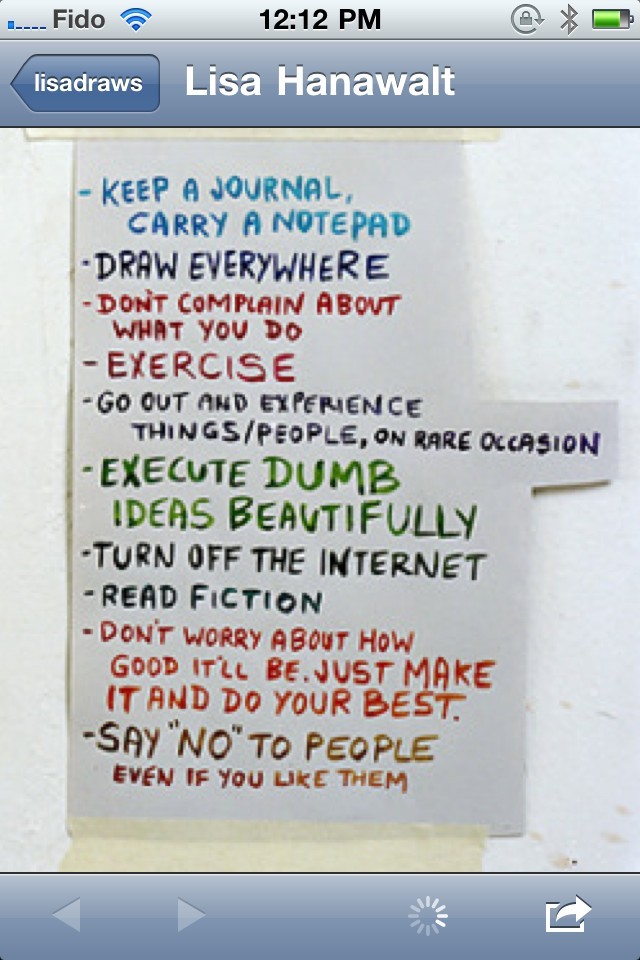 Fido 12:12 PM
lisadraws Lisa Hanawalt
- KEEP A JOURNAL,
CARRY A NOTEPAD
- DRAW EVERYWHERE
- DON'T COMPLAIN ABOUT
WHAT YOU DO
- EXERCISE
- GO OUT AND EXPERIENCE
THINGS/PEOPLE, ON RARE OCCASION
- EXECUTE DUMB
IDEAS BEAUTIFULLY
- TURN OFF THE INTERNET
- READ FICTION
- DON'T WORRY ABOUT HOW
GOOD IT'LL BE. JUST MAKE
IT AND DO YOUR BEST.
- SAY "NO" TO PEOPLE
EVEN IF YOU LIKE THEM